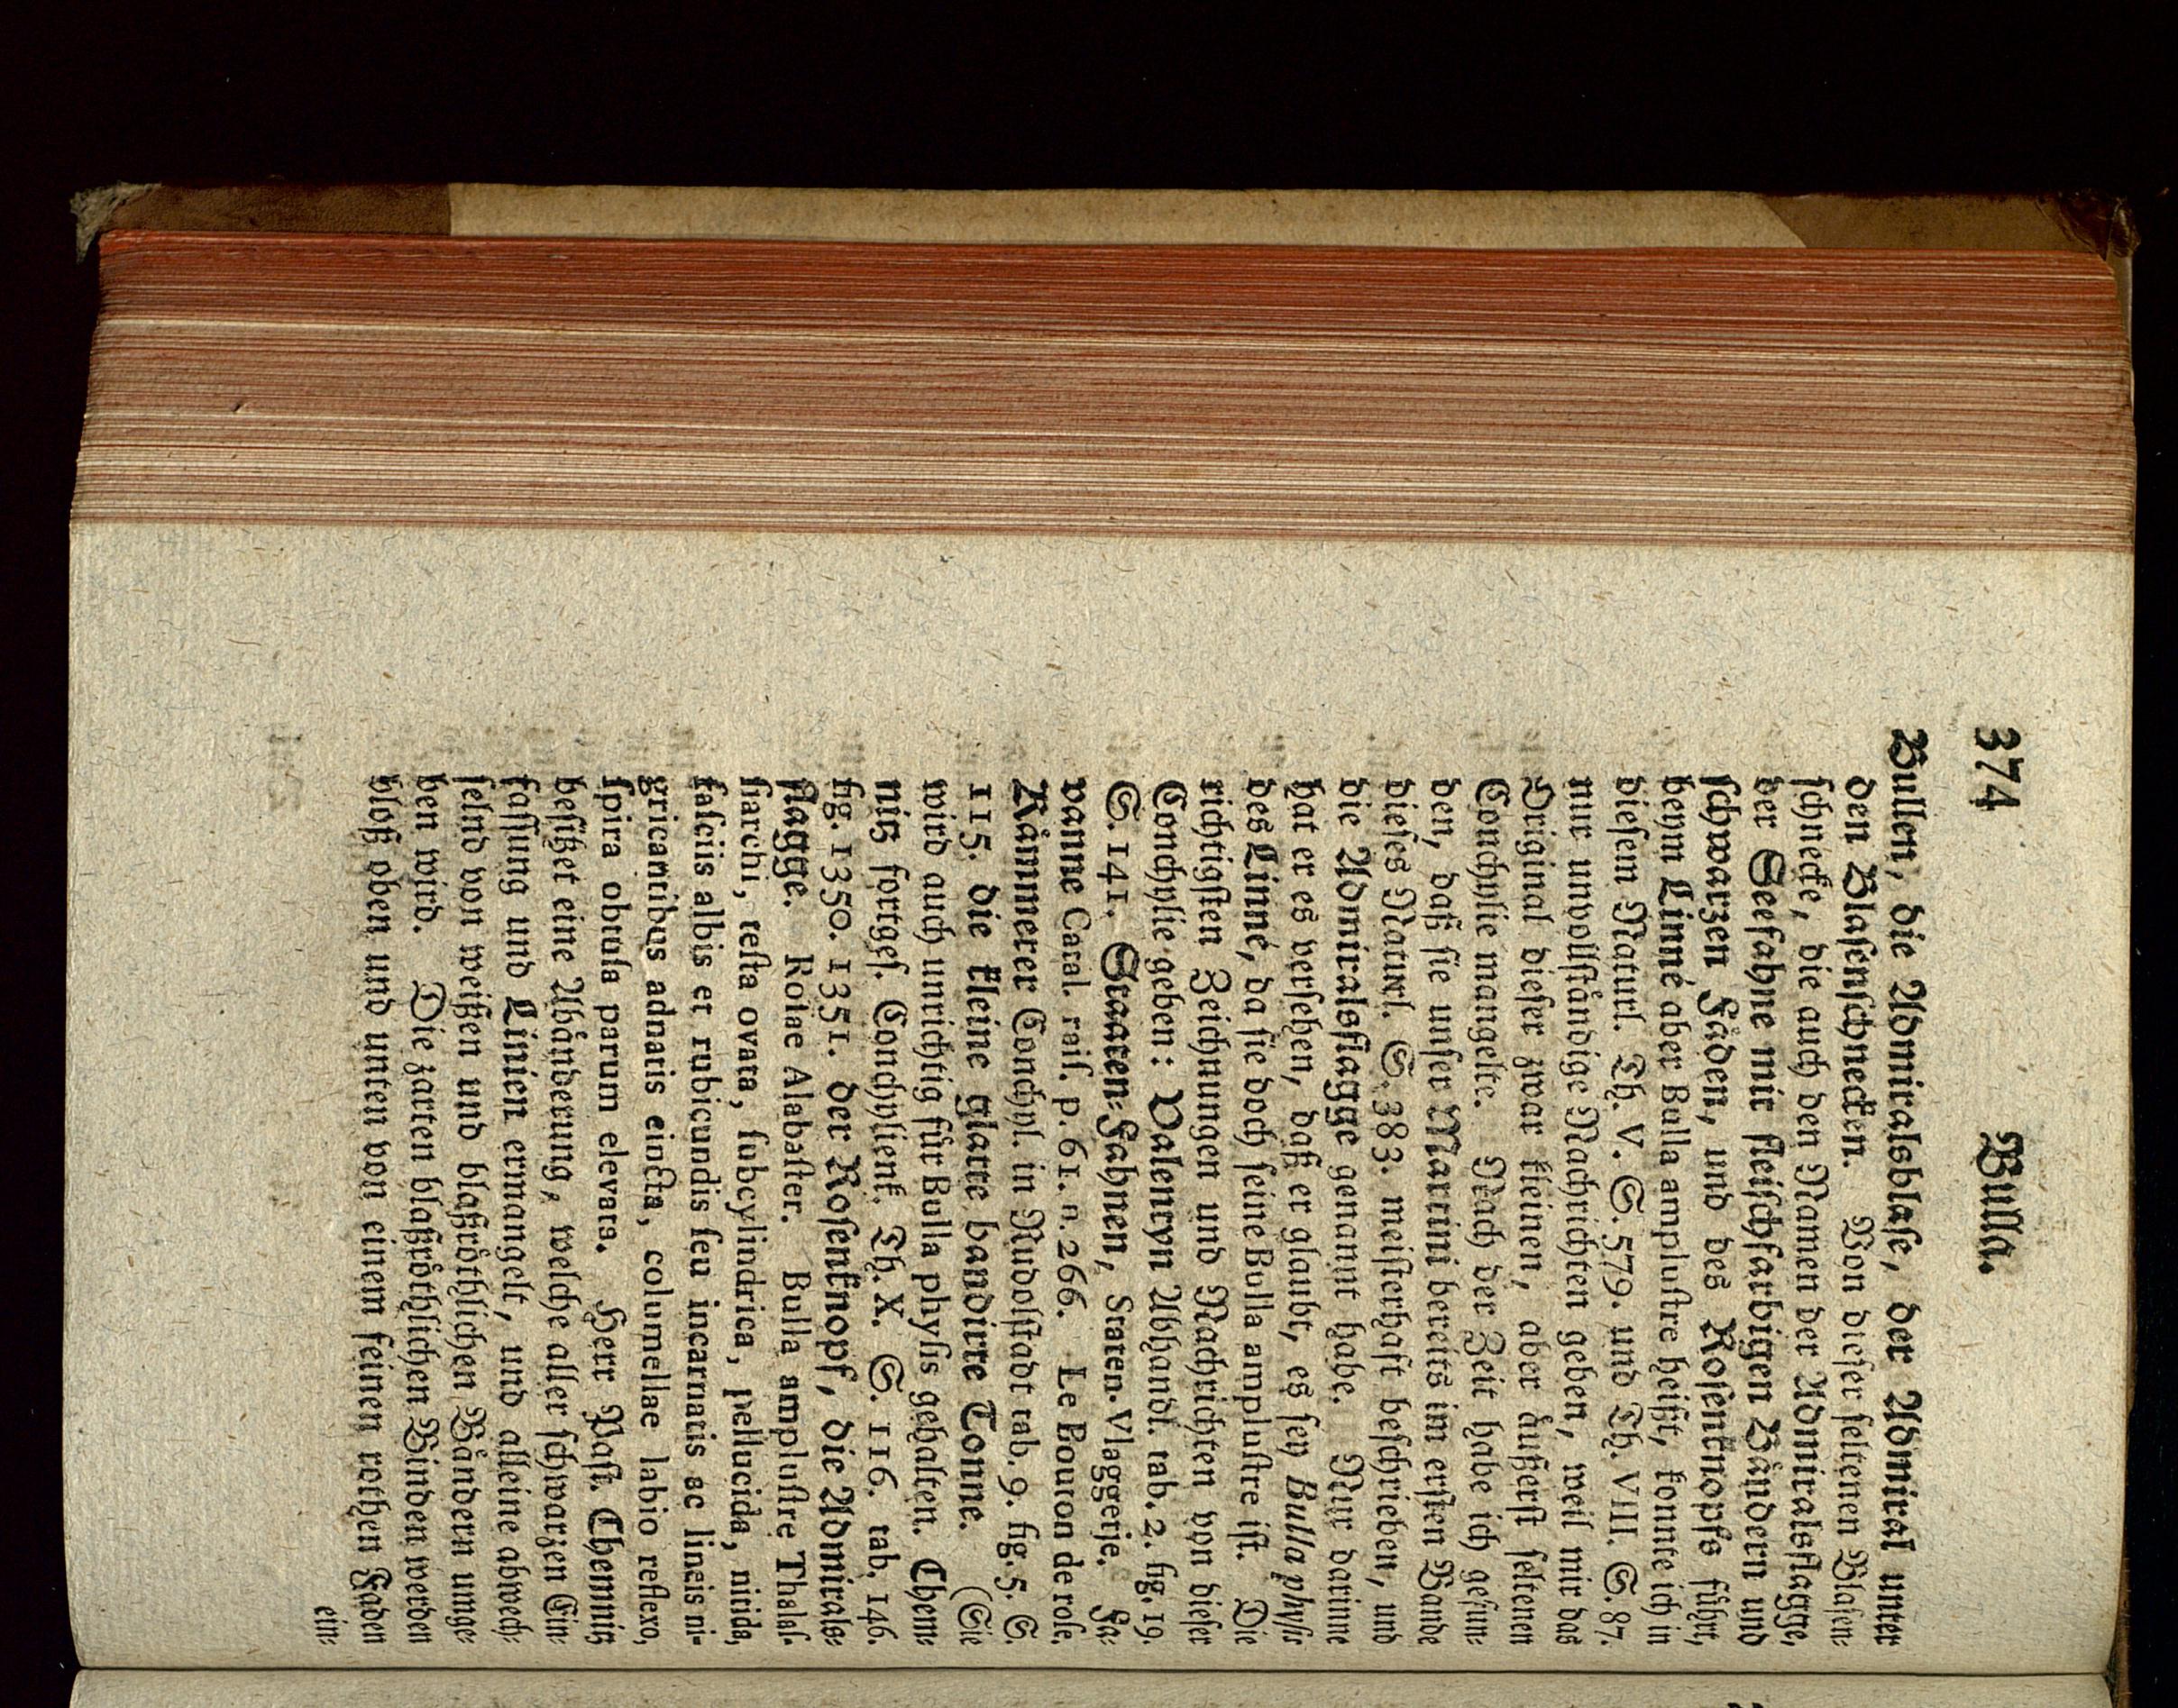 374 Bulla.
Bullen, die Admiralsblase, der Admiral unter
den Blasenschnecken. Von dieser seltenen Blasen-
schnecke, die auch den Namen der Admiralsflagge,
der Seefahne mit fleischfarbigen Bändern und
schwarzen Fäden, und des Rosenknopfs führt,
beym Linné aber Bulla amplustre heißt, konnte ich in
diesem Naturl. Th. V. S. 579. und Th. VIII. S. 87.
nur unvollständige Nachrichten geben, weil mir das
Original dieser zwar kleinen, aber äußerst seltenen
Conchylie mangelte. Nach der Zeit habe ich gefun-
den, daß sie unser Martini bereits im ersten Bande
dieses Naturl. S. 383. meisterhaft beschrieben, und
die Admiralsflagge genannt habe. Nur darinne
hat er es versehen, daß er glaubt, es sey Bulla physis
des Linné, da sie doch seine Bulla amplustre ist. Die
richtigsten Zeichnungen und Nachrichten von dieser
Conchylie geben: Valentyn Abhandl. tab. 2. fig. 19.
S. 141. Staaten-Fahnen, Staten-Vlaggetje. Fa-
vanne Catal. rais. p. 61. n. 266. Le Bouton de rose.
Kämmerer Conchyl. in Rudolstadt tab. 9. fig. 5. S.
115. die kleine glatte bandirte Tonne. (Sie
wird auch unrichtig für Bulla physis gehalten. Chem-
nitz fortges. Conchylienk. Th. X. S. 116. tab. 146.
fig. 1350. 1351. der Rosenknopf, die Admirals-
flagge. Rosae Alabaster. Bulla amplustre Thalas-
siarchi, testa ovata, subcylindrica, pellucida, nitida,
fasciis albis et rubicundis seu incarnatis ac lineis ni-
gricantibus adnatis eincta, columellae labio reflexo,
spira obtusa parum elevata. Herr Past. Chemnitz
besitzet eine Abänderung, welche aller schwarzen Ein-
fassung und Linien ermangelt, und alleine abwech-
selnd von weißen und blaßröthlichen Bändern umge-
ben wird. Die zarten blaßröthlichen Binden werden
bloß oben und unten von einem feinen rothen Faden
ein-